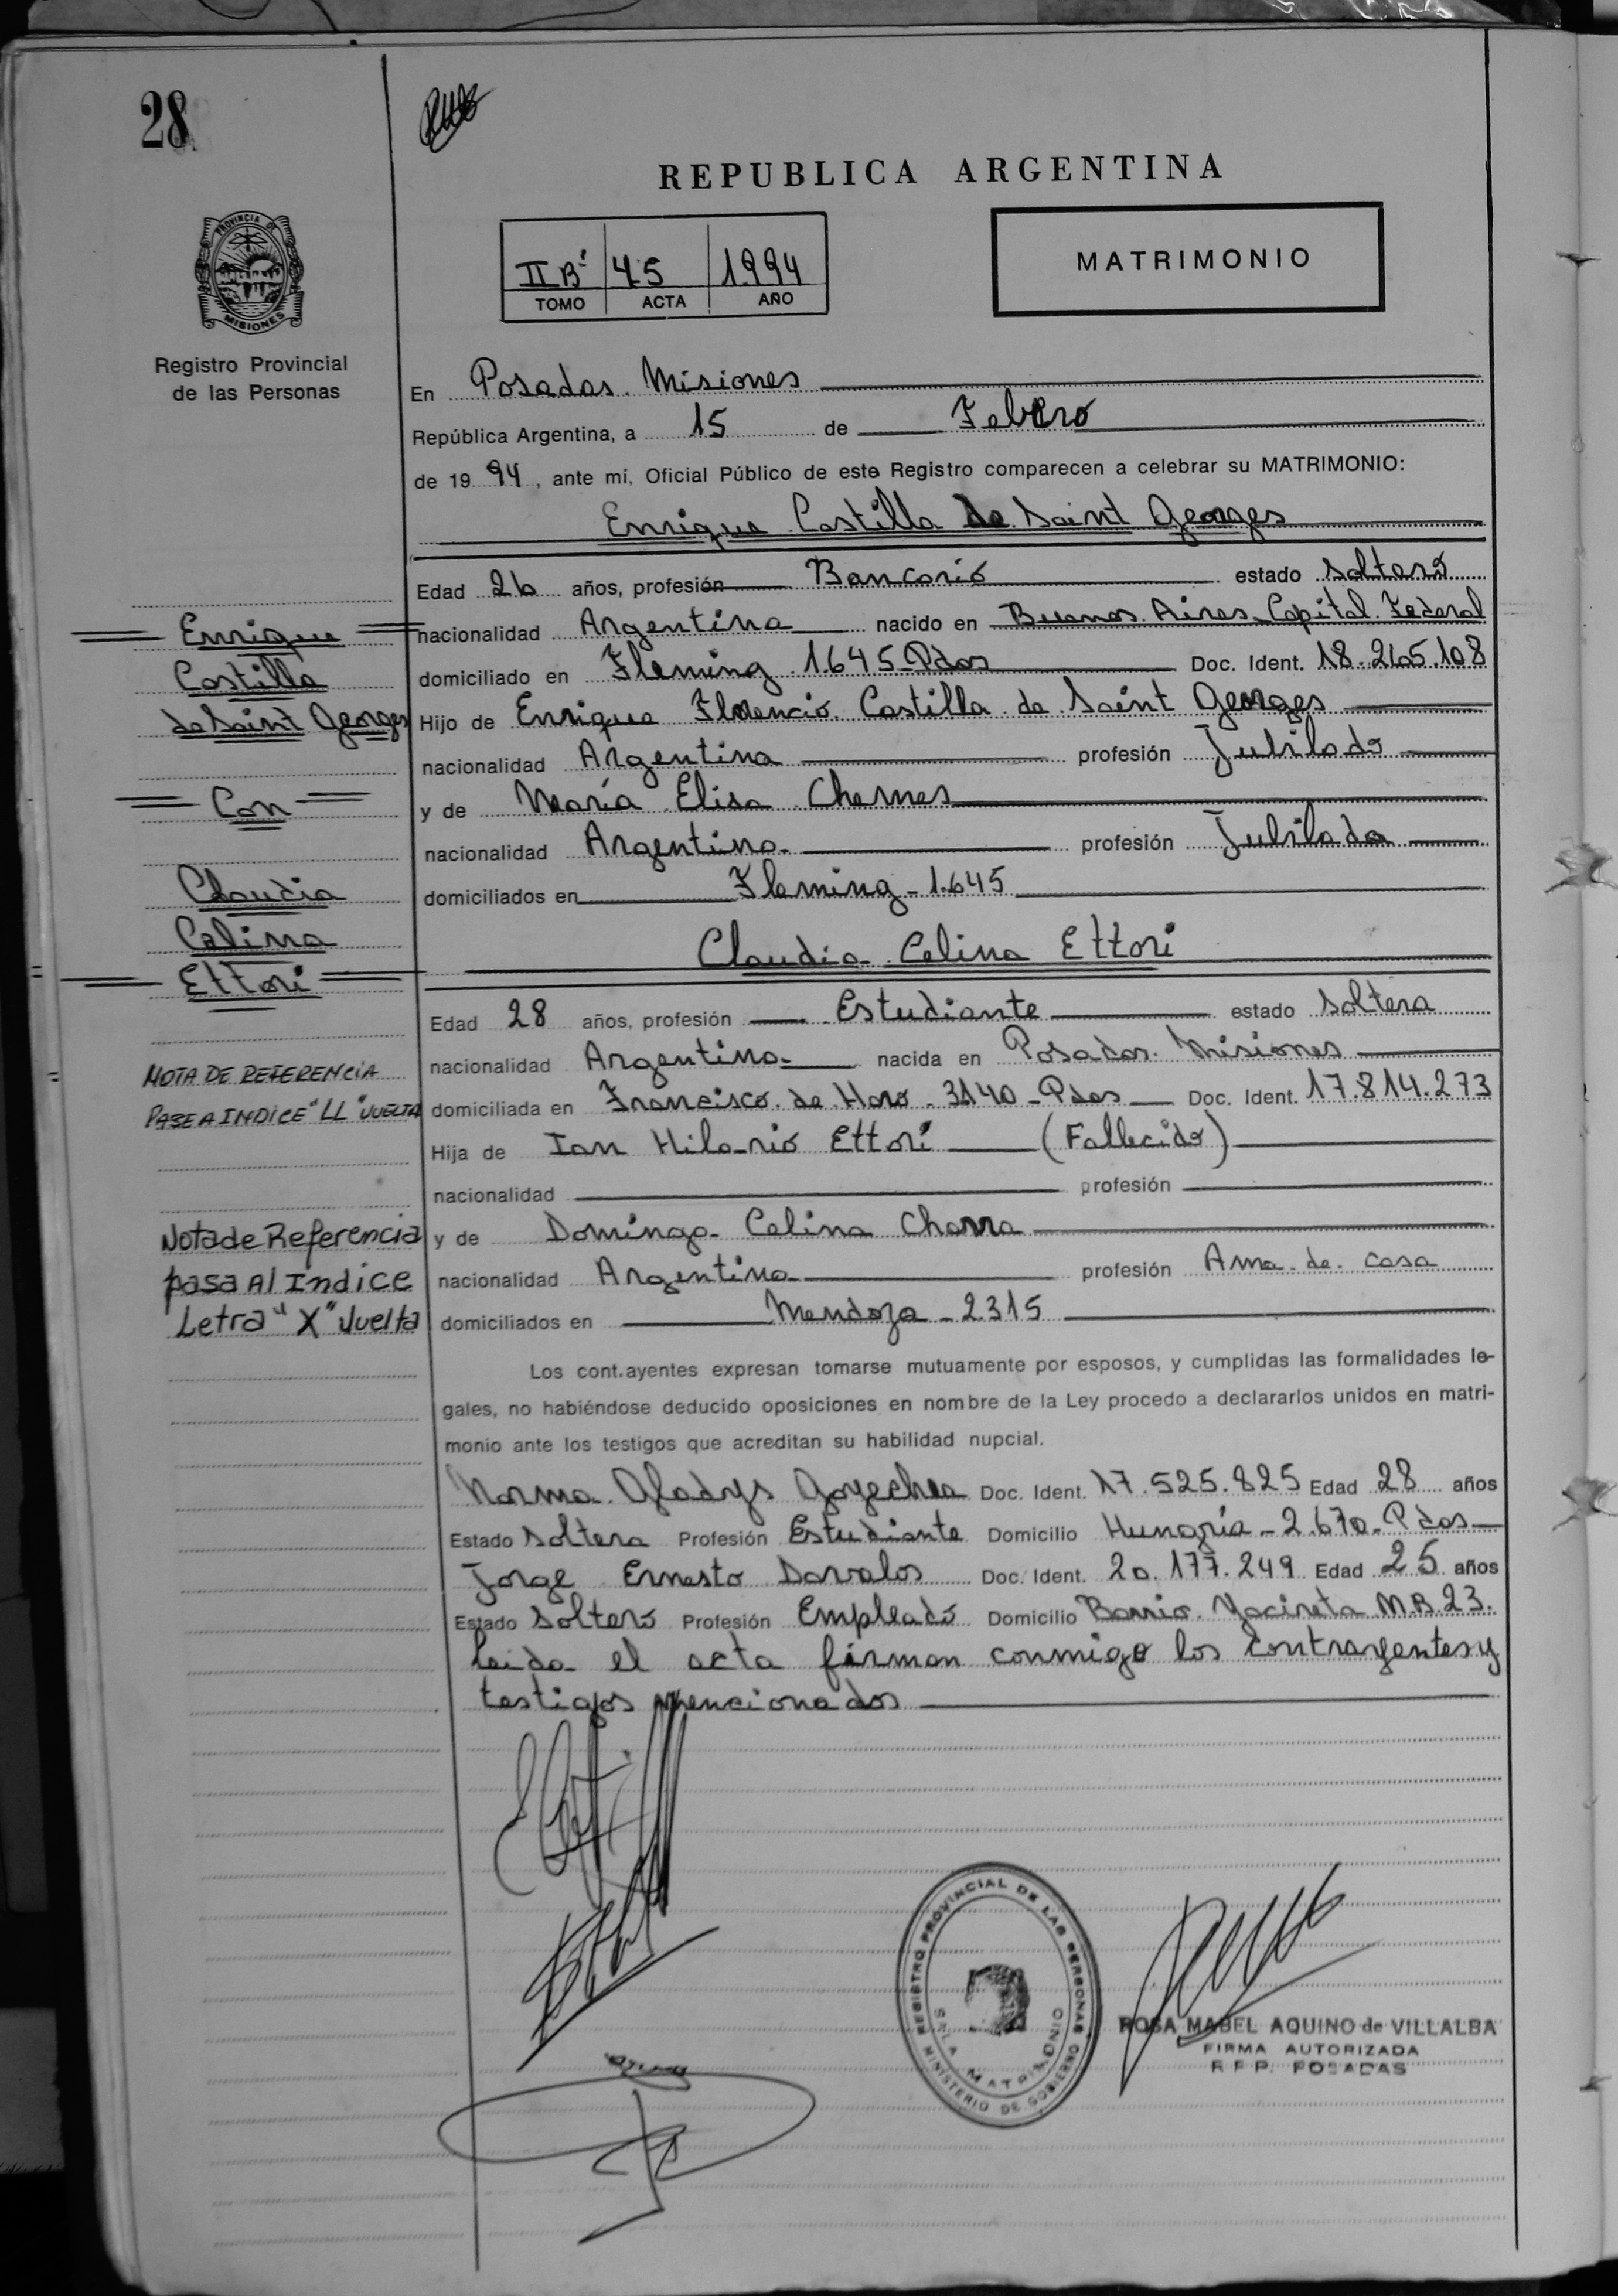 28
REPUBLICA ARGENTINA
PROVINCIA DE
MISIONES
Registro Provincial
de las Personas
II Bº 45 1994
TOMO ACTA AÑO
MATRIMONIO
En Posadas. Misiones
República Argentina, a 15 de Febrero
de 19 94, ante mí, Oficial Público de este Registro comparecen a celebrar su MATRIMONIO:
Enrique Castilla de Saint Georges
Edad 26 años, profesión Bancario estado soltero
nacionalidad Argentina nacido en Buenos Aires Capital Federal
domiciliado en Fleming 1645-Pdas Doc. Ident. 18.265.108
Hijo de Enrique Florencio Castilla de Saint Georges
nacionalidad Argentina profesión Jubilado
y de María Elisa Chemes
nacionalidad Argentina profesión Jubilada
domiciliados en Fleming - 1.645
Claudia Celina Ettori
Edad 28 años, profesión Estudiante estado soltera
nacionalidad Argentina nacida en Posadas. Misiones
domiciliada en Francisco de Haro - 3140 - Pdas Doc. Ident. 17.814.273
Hija de Ian Hilario Ettori (Fallecido)
nacionalidad profesión
y de Dominga Celina
nacionalidad Argentina profesión Ama de casa
domiciliados en Mendoza - 2.315
Los cont.ayentes expresan tomarse mutuamente por esposos, y cumplidas las formalidades le-
gales, no habiéndose deducido oposiciones en nombre de la Ley procedo a declararlos unidos en matri-
monio ante los testigos que acreditan su habilidad nupcial.
Norma Gladys Goyechea Doc. Ident. 17.525.825 Edad 28 años
Estado soltera Profesión Estudiante Domicilio Hungría - 2.670 - Pdas
Jorge Ernesto Davalos Doc. Ident. 20.177.249 Edad 25 años
Estado soltero Profesión Empleado Domicilio Barrio Yacireta M.B.23.
Leida el acta firman conmigo los contrayentes y
testigos mencionados
Enrique
Castilla
de Saint Georges
Con
Claudia
Celina
Ettori
NOTA DE REFERENCIA
PASE A INDICE "LL" VUELTA
Nota de Referencia
pasa Al Indice
Letra "X" Vuelta
REGISTRO PROVINCIAL DE LAS PERSONAS
SALA MATRIMONIO
MINISTERIO DE GOBIERNO
ROSA MABEL AQUINO de VILLALBA
FIRMA AUTORIZADA
R P P. POSADAS